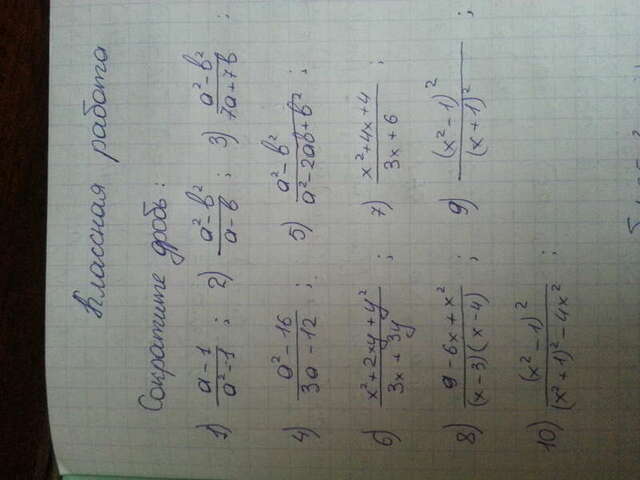 Классная работа
Сократите дробь:
1) (a-1)/(a²-1); 2) (a²-b²)/(a-b); 3) (a²-b²)/(7a+7b);
4) (a²-16)/(3a-12); 5) (a²-b²)/(a²-2ab+b²);
6) (x²+2xy+y²)/(3x+3y); 7) (x²+4x+4)/(3x+6);
8) (9-6x+x²)/((x-3)(x-4)); 9) (x²-1)²/(x+1)²;
10) (x²-1)²/((x²+1)²-4x²);